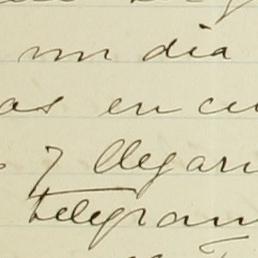 un dia
as en cu
y llegar
telegram